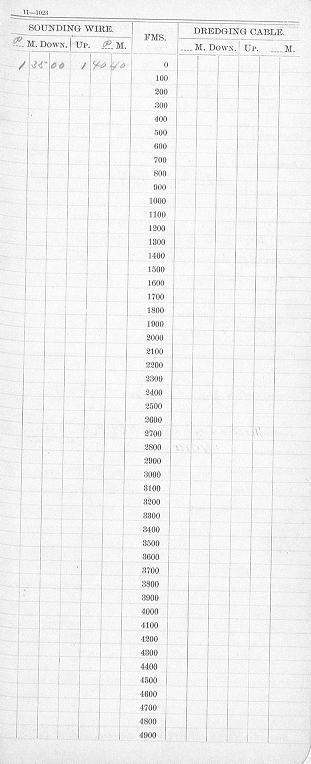 11—1023
SOUNDING WIRE. FMS. DREDGING CABLE.
P. M. DOWN. UP. P. M. .... M. DOWN. UP. .... M.
1 35 00 1 40 40 0
100
200
300
400
500
600
700
800
900
1000
1100
1200
1300
1400
1500
1600
1700
1800
1900
2000
2100
2200
2300
2400
2500
2600
2700
2800
2900
3000
3100
3200
3300
3400
3500
3600
3700
3800
3900
4000
4100
4200
4300
4400
4500
4600
4700
4800
4900